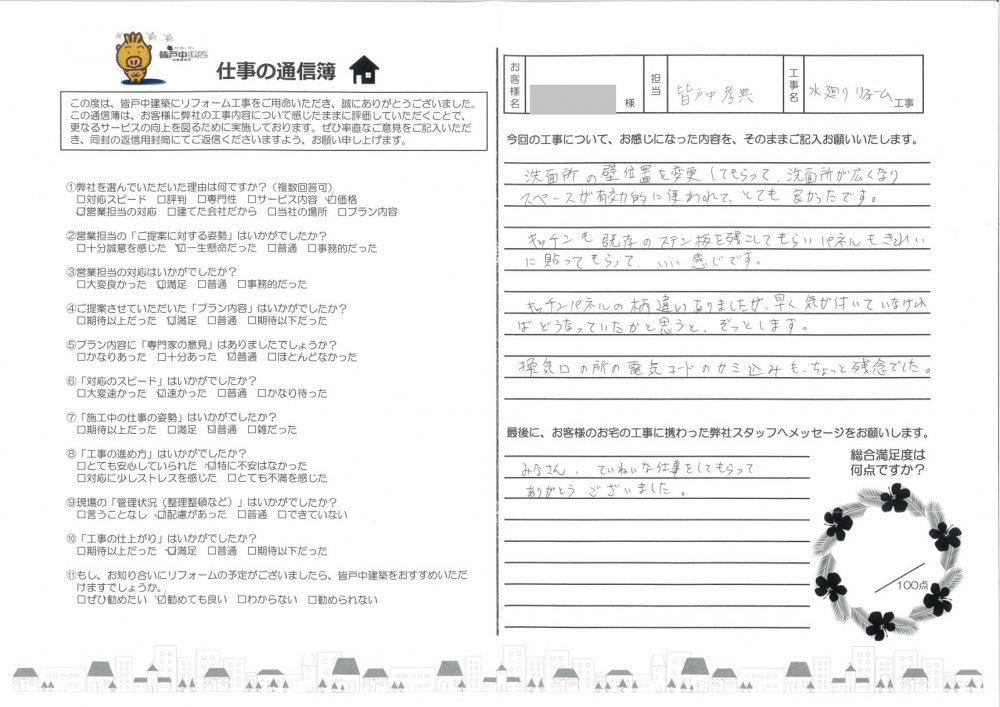 皆戸中建築
仕事の通信簿
この度は、皆戸中建築にリフォーム工事をご用命いただき、誠にありがとうございました。
この通信簿は、お客様に弊社の工事内容について感じたままに評価していただくことで、
更なるサービスの向上を図るために実施しております。ぜひ率直なご意見をご記入いただ
き、同封の返信用封筒にてご返信くださいますよう、お願い申し上げます。
①弊社を選んでいただいた理由は何ですか？（複数回答可）
□対応スピード □評判 □専門性 □サービス内容 ☑価格
☑営業担当の対応 □建てた会社だから □当社の場所 □プラン内容
②営業担当の「ご提案に対する姿勢」はいかがでしたか？
□十分誠意を感じた ☑一生懸命だった □普通 □事務的だった
③営業担当の対応はいかがでしたか？
□大変良かった ☑満足 □普通 □事務的だった
④ご提案させていただいた「プラン内容」はいかがでしたか？
□期待以上だった ☑満足 □普通 □期待以下だった
⑤プラン内容に「専門家の意見」はありましたでしょうか？
□かなりあった □十分あった ☑普通 □ほとんどなかった
⑥「対応のスピード」はいかがでしたか？
□大変速かった ☑速かった □普通 □かなり待った
⑦「施工中の仕事の姿勢」はいかがでしたか？
□期待以上だった □満足 ☑普通 □雑だった
⑧「工事の進め方」はいかがでしたか？
□とても安心していられた ☑特に不安はなかった
□対応に少しストレスを感じた □とても不満を感じた
⑨現場の「管理状況（整理整頓など）」はいかがでしたか？
□言うことなし ☑配慮があった □普通 □できていない
⑩「工事の仕上がり」はいかがでしたか？
□期待以上だった ☑満足 □普通 □期待以下だった
⑪もし、お知り合いにリフォームの予定がございましたら、皆戸中建築をおすすめいただ
けますでしょうか。
□ぜひ勧めたい ☑勧めても良い □わからない □勧められない
お客様名 様 担当 皆戸中孝典 工事名 水廻りリフォーム工事
今回の工事について、お感じになった内容を、そのままご記入お願いいたします。
洗面所の壁位置を変更してもらって、洗面所が広くなり
スペースが有効的に使われて、とても良かったです。
キッチンも既存のステン板を残こしてもらいパネルもきれい
に貼ってもらって、いい感じです。
キッチンパネルの柄違いありましたが、早く気が付いていなけれ
ばどうなっていたかと思うと、ぞっとします。
換気口の所の電気コードのカミ込みも、ちょっと残念でした。
最後に、お客様のお宅の工事に携わった弊社スタッフへメッセージをお願いします。
みなさん、ていねいな仕事をしてもらって
ありがとうございました。
総合満足度は
何点ですか？
100点